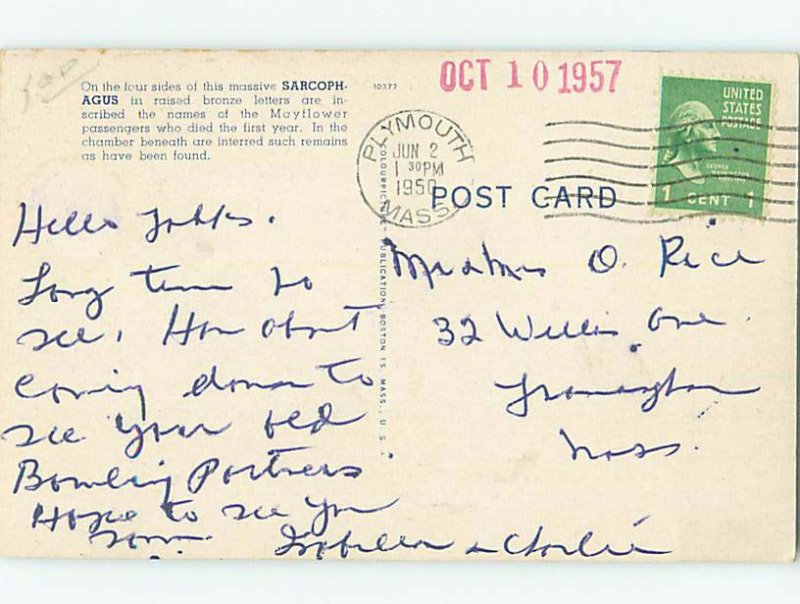 On the four sides of this massive SARCOPH-
AGUS in raised bronze letters are in-
scribed the names of the Mayflower
passengers who died the first year. In the
chamber beneath are interred such remains
as have been found.
10377
OCT 10 1957
UNITED
STATES
POSTAGE
GEORGE
1 CENT 1
PLYMOUTH
JUN 2
1 30 PM
1950
MASS.
POST CARD
PUBLICATION, BOSTON 15, MASS., U.S.A.
Hello folks.
Long time no
see. How about
coming down to
see your old
Bowling Partners
Hope to see you
soon.
& Charlie
Mr & Mrs O. Rice
32 Willis Ave.
Framingham
Mass.